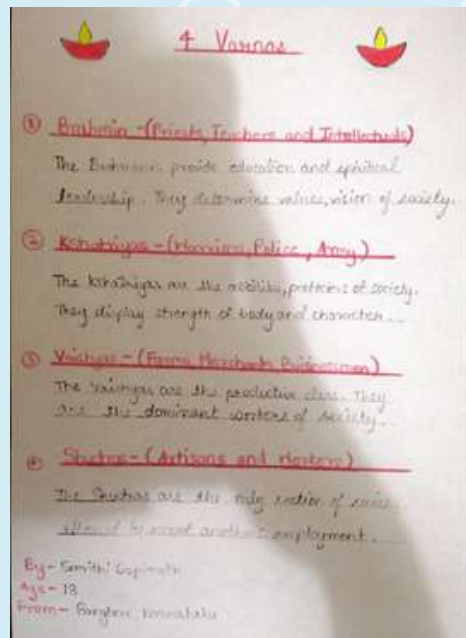 4 Varnas
① Brahmin - (Priests, Teachers and Intellectuals)
The Brahmins provide education and spiritual
leadership. They determine values, vision of society.
② Kshatriyas - (Warriors, Police, Army)
The Kshatriyas are the nobility, protectors of society.
They display strength of body and character...
③ Vaishyas - (Farms, Merchants, Businessmen)
The Vaishyas are the productive class. They
are the dominant workers of society.
④ Shudras - (Artisans and Workers)
The Shudras are the only section of
allowed to accept another's employment.
By - Smithi Gopinath
Age - 13
From - Karnataka